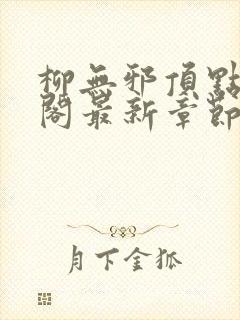 柳無邪頂點
閣最新章節
月下金狐